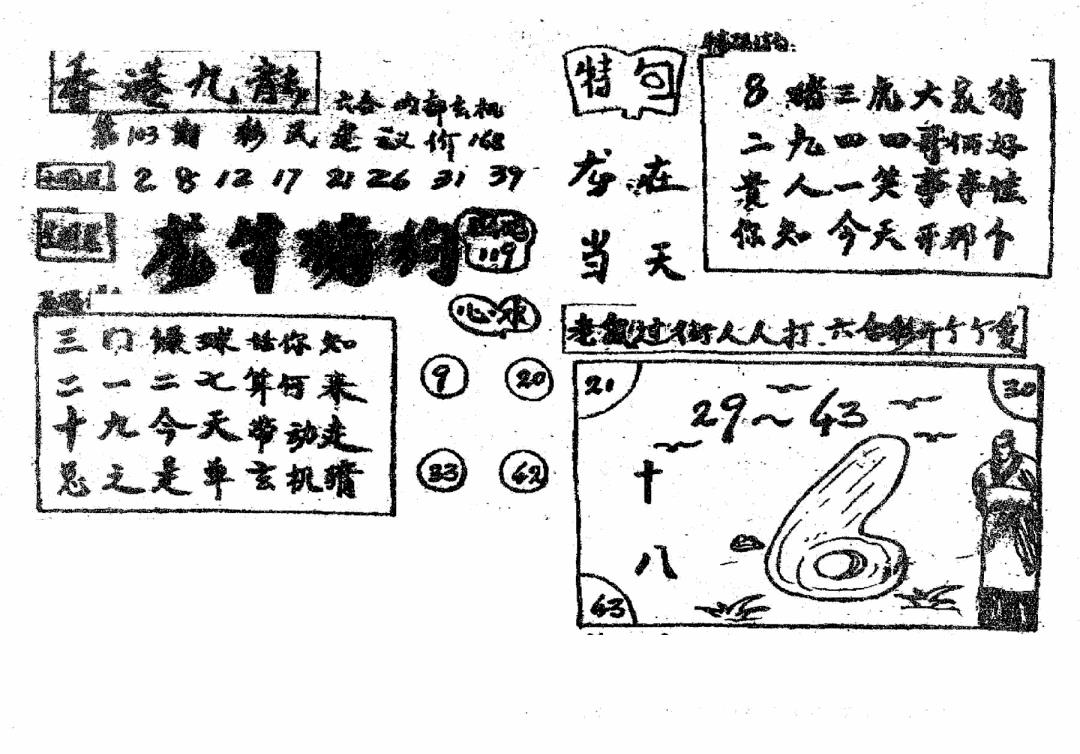 香港九龙
六合内部玄机
第103期 彩民建议价168
2 8 12 17 21 26 31 39
龙牛猪狗
119
心水
三门绿球话你知
二一二七算何来
十九今天带动走
总之是单玄机猜
9 20
33 42
特句
龙在
当天
8猪三虎大家猜
二九四四哥俩好
贵人一笑事事佳
你知今天开那个
老鼠过街人人打.六合彩开个个爱
21
30
29~43
十
八
43